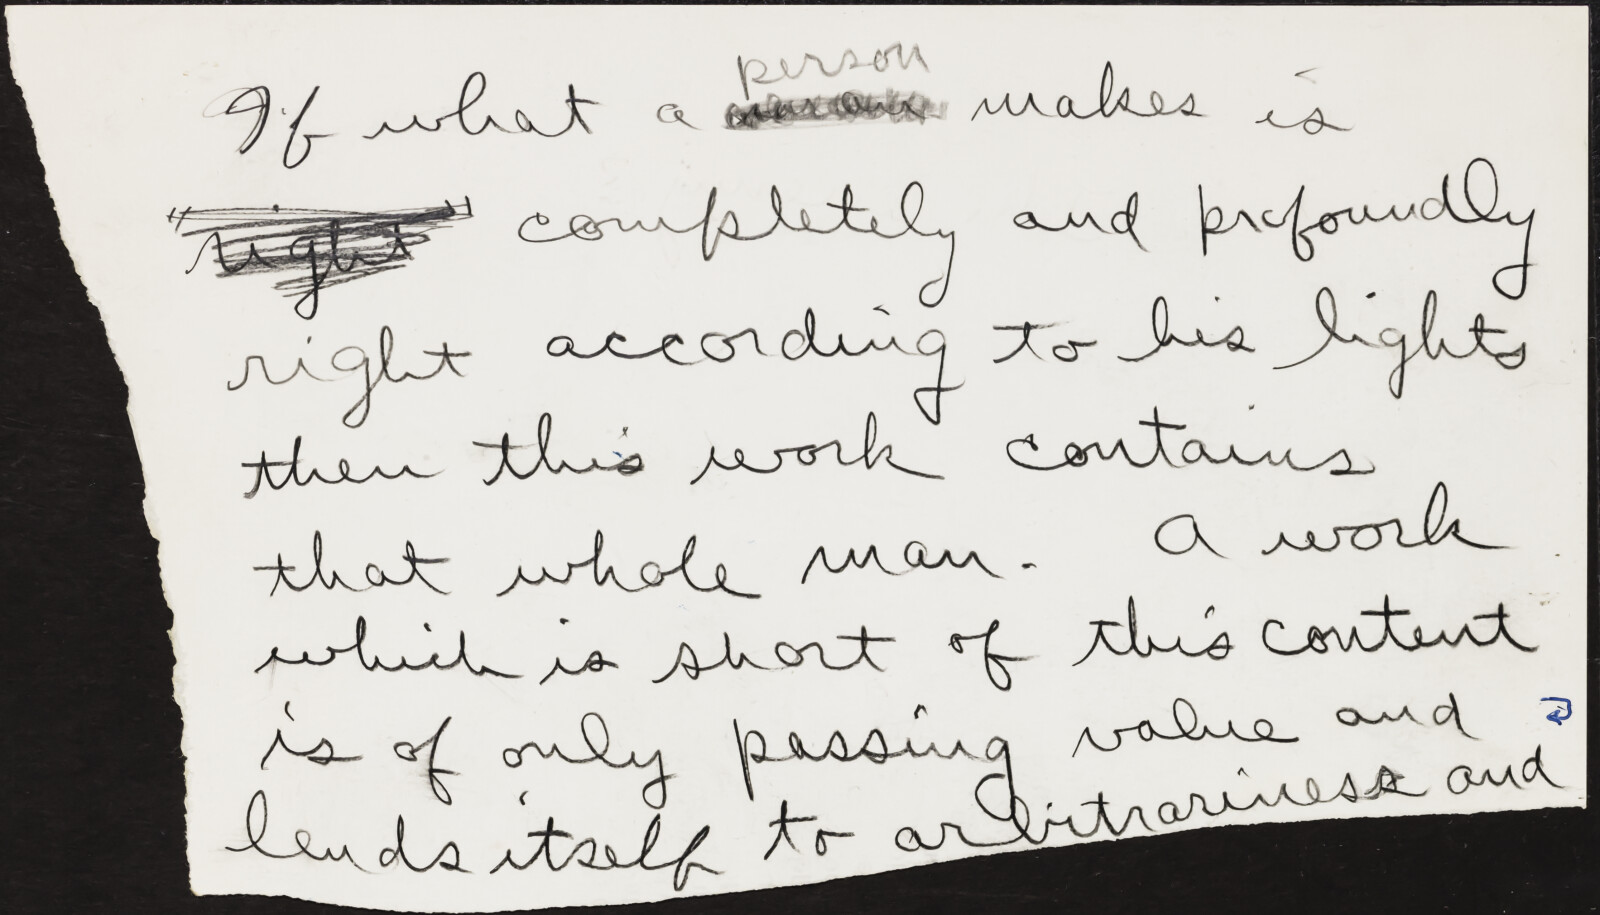 If what a person makes is
right completely and profoundly
right according to his lights
then this work contains
that whole man. A work
which is short of this content
is of only passing value and
lends itself to arbitrariness and